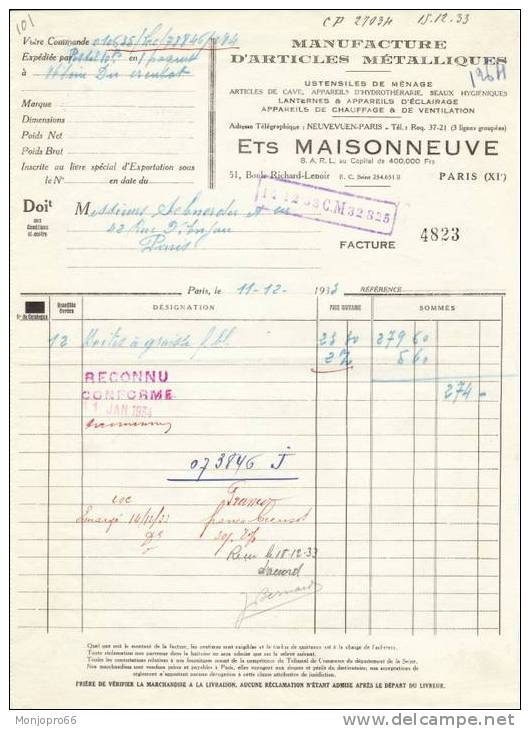 101
CP 27034 15.12.33
Votre Commande
Expédiée par en 1 paquet
à Usine Du Creusot
Marque
Dimensions
Poids Net
Poids Brut
Inscrite au livre spécial d'Exportation sous
le N° en date du
MANUFACTURE
D'ARTICLES MÉTALLIQUES
USTENSILES DE MÉNAGE
ARTICLES DE CAVE, APPAREILS D'HYDROTHÉRAPIE, SEAUX HYGIÉNIQUES
LANTERNES & APPAREILS D'ÉCLAIRAGE
APPAREILS DE CHAUFFAGE & DE VENTILATION
Adresse Télégraphique : NEUVEVUEN-PARIS - Tél. : Roq. 37-21 (3 lignes groupées)
ETS MAISONNEUVE
S. A. R. L. au Capital de 400,000 Frs
51, Boule Richard-Lenoir R. C. Seine 254.651 B PARIS (XIe)
Doit
aux
Conditions
ci-contre
Messieurs Schneider & Cie
42 Rue D'Anjou
Paris
14-12-33 C.M 32825
FACTURE 4823
Paris, le 11-12- 1933 RÉFÉRENCE
N° du Catalogue Quantités livrées DÉSIGNATION PRIX UNITAIRE SOMMES
12 Boites à graisse 23 30 279 60
2% 5 60
274 -
RECONNU
CONFORME
11 JAN 1934
073846 J
Franco
Emargé 14/12/33 franco Creusot
Reçu le 18-12-33
d'accord
J Bernard
Quel que soit le montant de la facture, les centimes sont exigibles et le timbre de quittance est à la charge de l'acheteur.
Toute réclamation non parvenue dans la huitaine ne sera admise que sur le relevé suivant.
Toutes les contestations relatives à nos fournitures seront de la compétence du Tribunal de Commerce du département de la Seine.
Nos marchandises sont vendues prises et payables à Paris, elles voyagent aux risques et périls du destinataire, nos acceptations de règlement n'apportant aucune dérogation à cette clause attributive de juridiction.
PRIÈRE DE VÉRIFIER LA MARCHANDISE A LA LIVRAISON, AUCUNE RÉCLAMATION N'ÉTANT ADMISE APRÈS LE DÉPART DU LIVREUR.
Monjopro66
delcampe.net